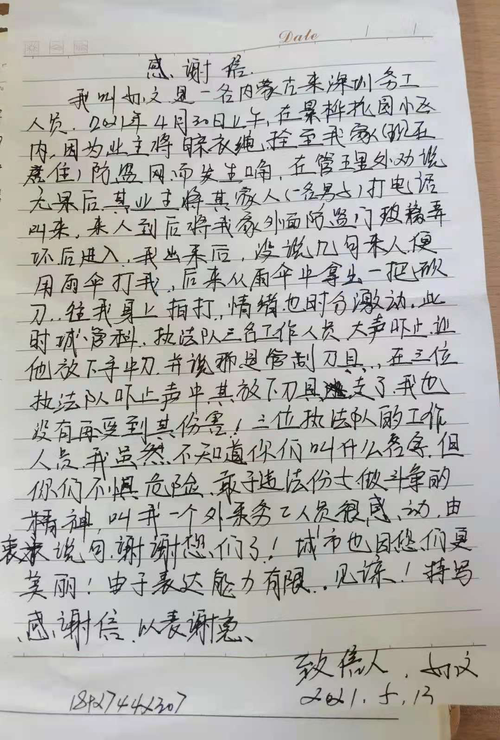 Date
感谢信.
我叫如文是一名内蒙古来深圳务工
人员. 2021年4月30日上午,在景桦花园小区
内,因为业主将晾衣绳,拴至我家(现在
居住)防盗网而发生口角,在管理处劝说
无果后,其业主将其家人(一名男士)打电话
叫来,来人到后将我家外面防盗门玻璃弄
坏后进入,我出来后,没说几句来人便
用雨伞打我,后来从雨伞中拿出一把砍
刀.往我身上拍打,情绪也时分激动.此
时城管科.执法队三名工作人员大声吓止让
他放下手中刀并说那是管制刀具.,在三位
执法队吓止声中其放下刀具 支了.我也
没有再受到其伤害!三位执法队的工作
人员.我虽然不知道你们叫什么名字.但
你们不惧危险.敢于违法份士做斗争的
精神,叫我一个外来务工人员很感动.由
衷 说句谢谢您们了!城市也因您们更
美丽!由于表达能力有限..见谅!特写
感谢信.以表谢意.
致信人.如文
18427442307
2021.5.13